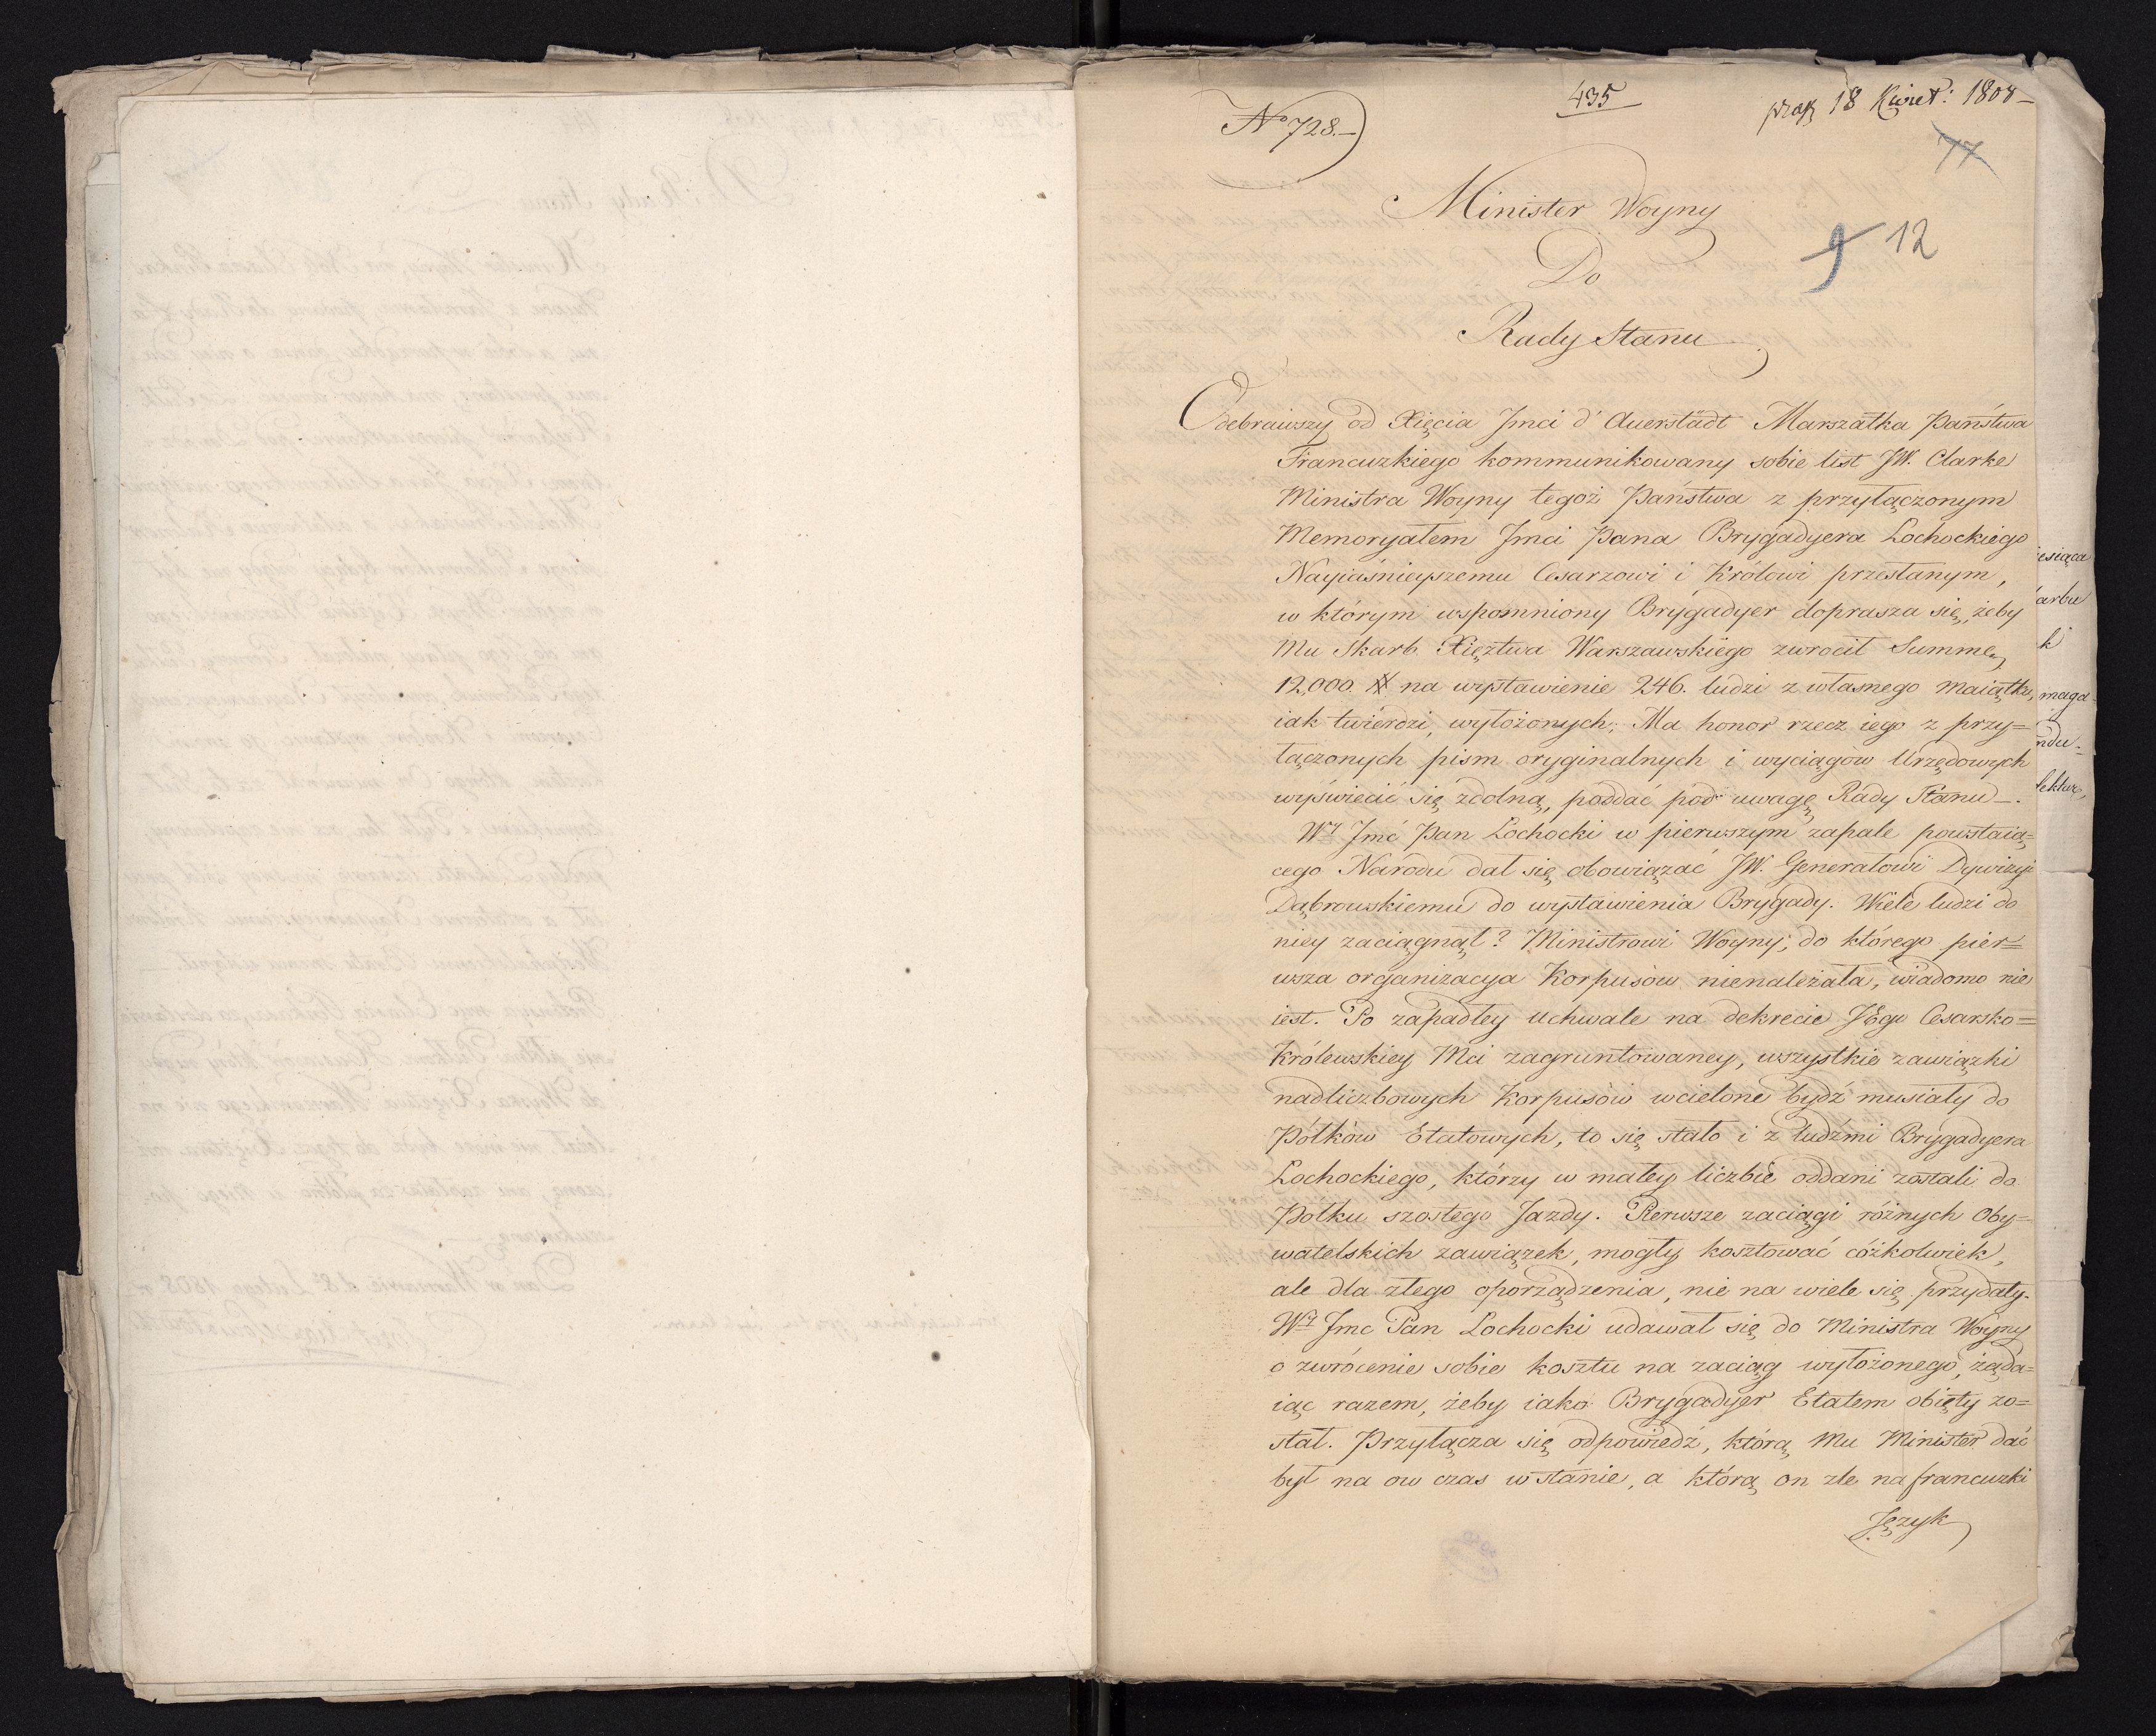 435
18 Kwiet: 1808
No 728.
77
Minister Woyny
9 12
Do
Rady Stanu
Odebrawszy od Xięcia Jmci d'Auerstädt Marszałka Państwa
Francuzkiego kommunikowany sobie list JW. Clarke
Ministra Woyny tegoż Państwa z przyłączonym
Memoryałem Jmci Pana Brygadyera Lochockiego
Nayiaśnieyszemu Cesarzowi i Królowi przesłanym,
w którym wspomniony Brygadyer doprasza się, żeby
Mu Skarb Xięztwa Warszawskiego zwrocił Summę
12,000 # na wystawienie 246. ludzi z własnego Maiątku,
iak twierdzi, wyłożonych; Ma honor rzecz iego z przy=
łączonych pism oryginalnych i wyciągów Urzędowych
wyświecić się zdolną, poddać pod uwagę Rady Stanu —.
Wy Jmć Pan Lochocki w pierwszym zapale powstaią=
cego Narodu dał się obowiązać JW. Generałowi Dywizyi
Dąbrowskiemu do wystawienia Brygady. Wiele ludzi do
niey zaciągnął? Ministrowi Woyny, do którego pier=
wsza organizacya Korpusów nienależała, wiadomo nie
iest. Po zapadłey uchwale na dekrecie JEgo Cesarsko=
Królewskiey Mci zagruntowaney, wszystkie zawiązki
nadliczbowych Korpusów wcielone bydź musiały do
Półków Etatowych, to się stało i z ludźmi Brygadyera
Lochockiego, którzy w małey liczbie oddani zostali do
Półku szostego Jazdy. Pierwsze zaciągi różnych Oby=
watelskich zawiązek, mogły kosztować cóżkolwiek,
ale dla złego oporządzenia, nie na wiele się przydały.
Wy Jmc Pan Lochocki udawał się do Ministra Woyny
o zwrócenie sobie kosztu na zaciąg wyłożonego, żąda=
iąc razem, żeby iako Brygadyer Etatem obięty zo=
stał. Przyłącza się odpowiedź, którą Mu Minister dać
był na ow czas w stanie, a którą on zle na francuzki
Język